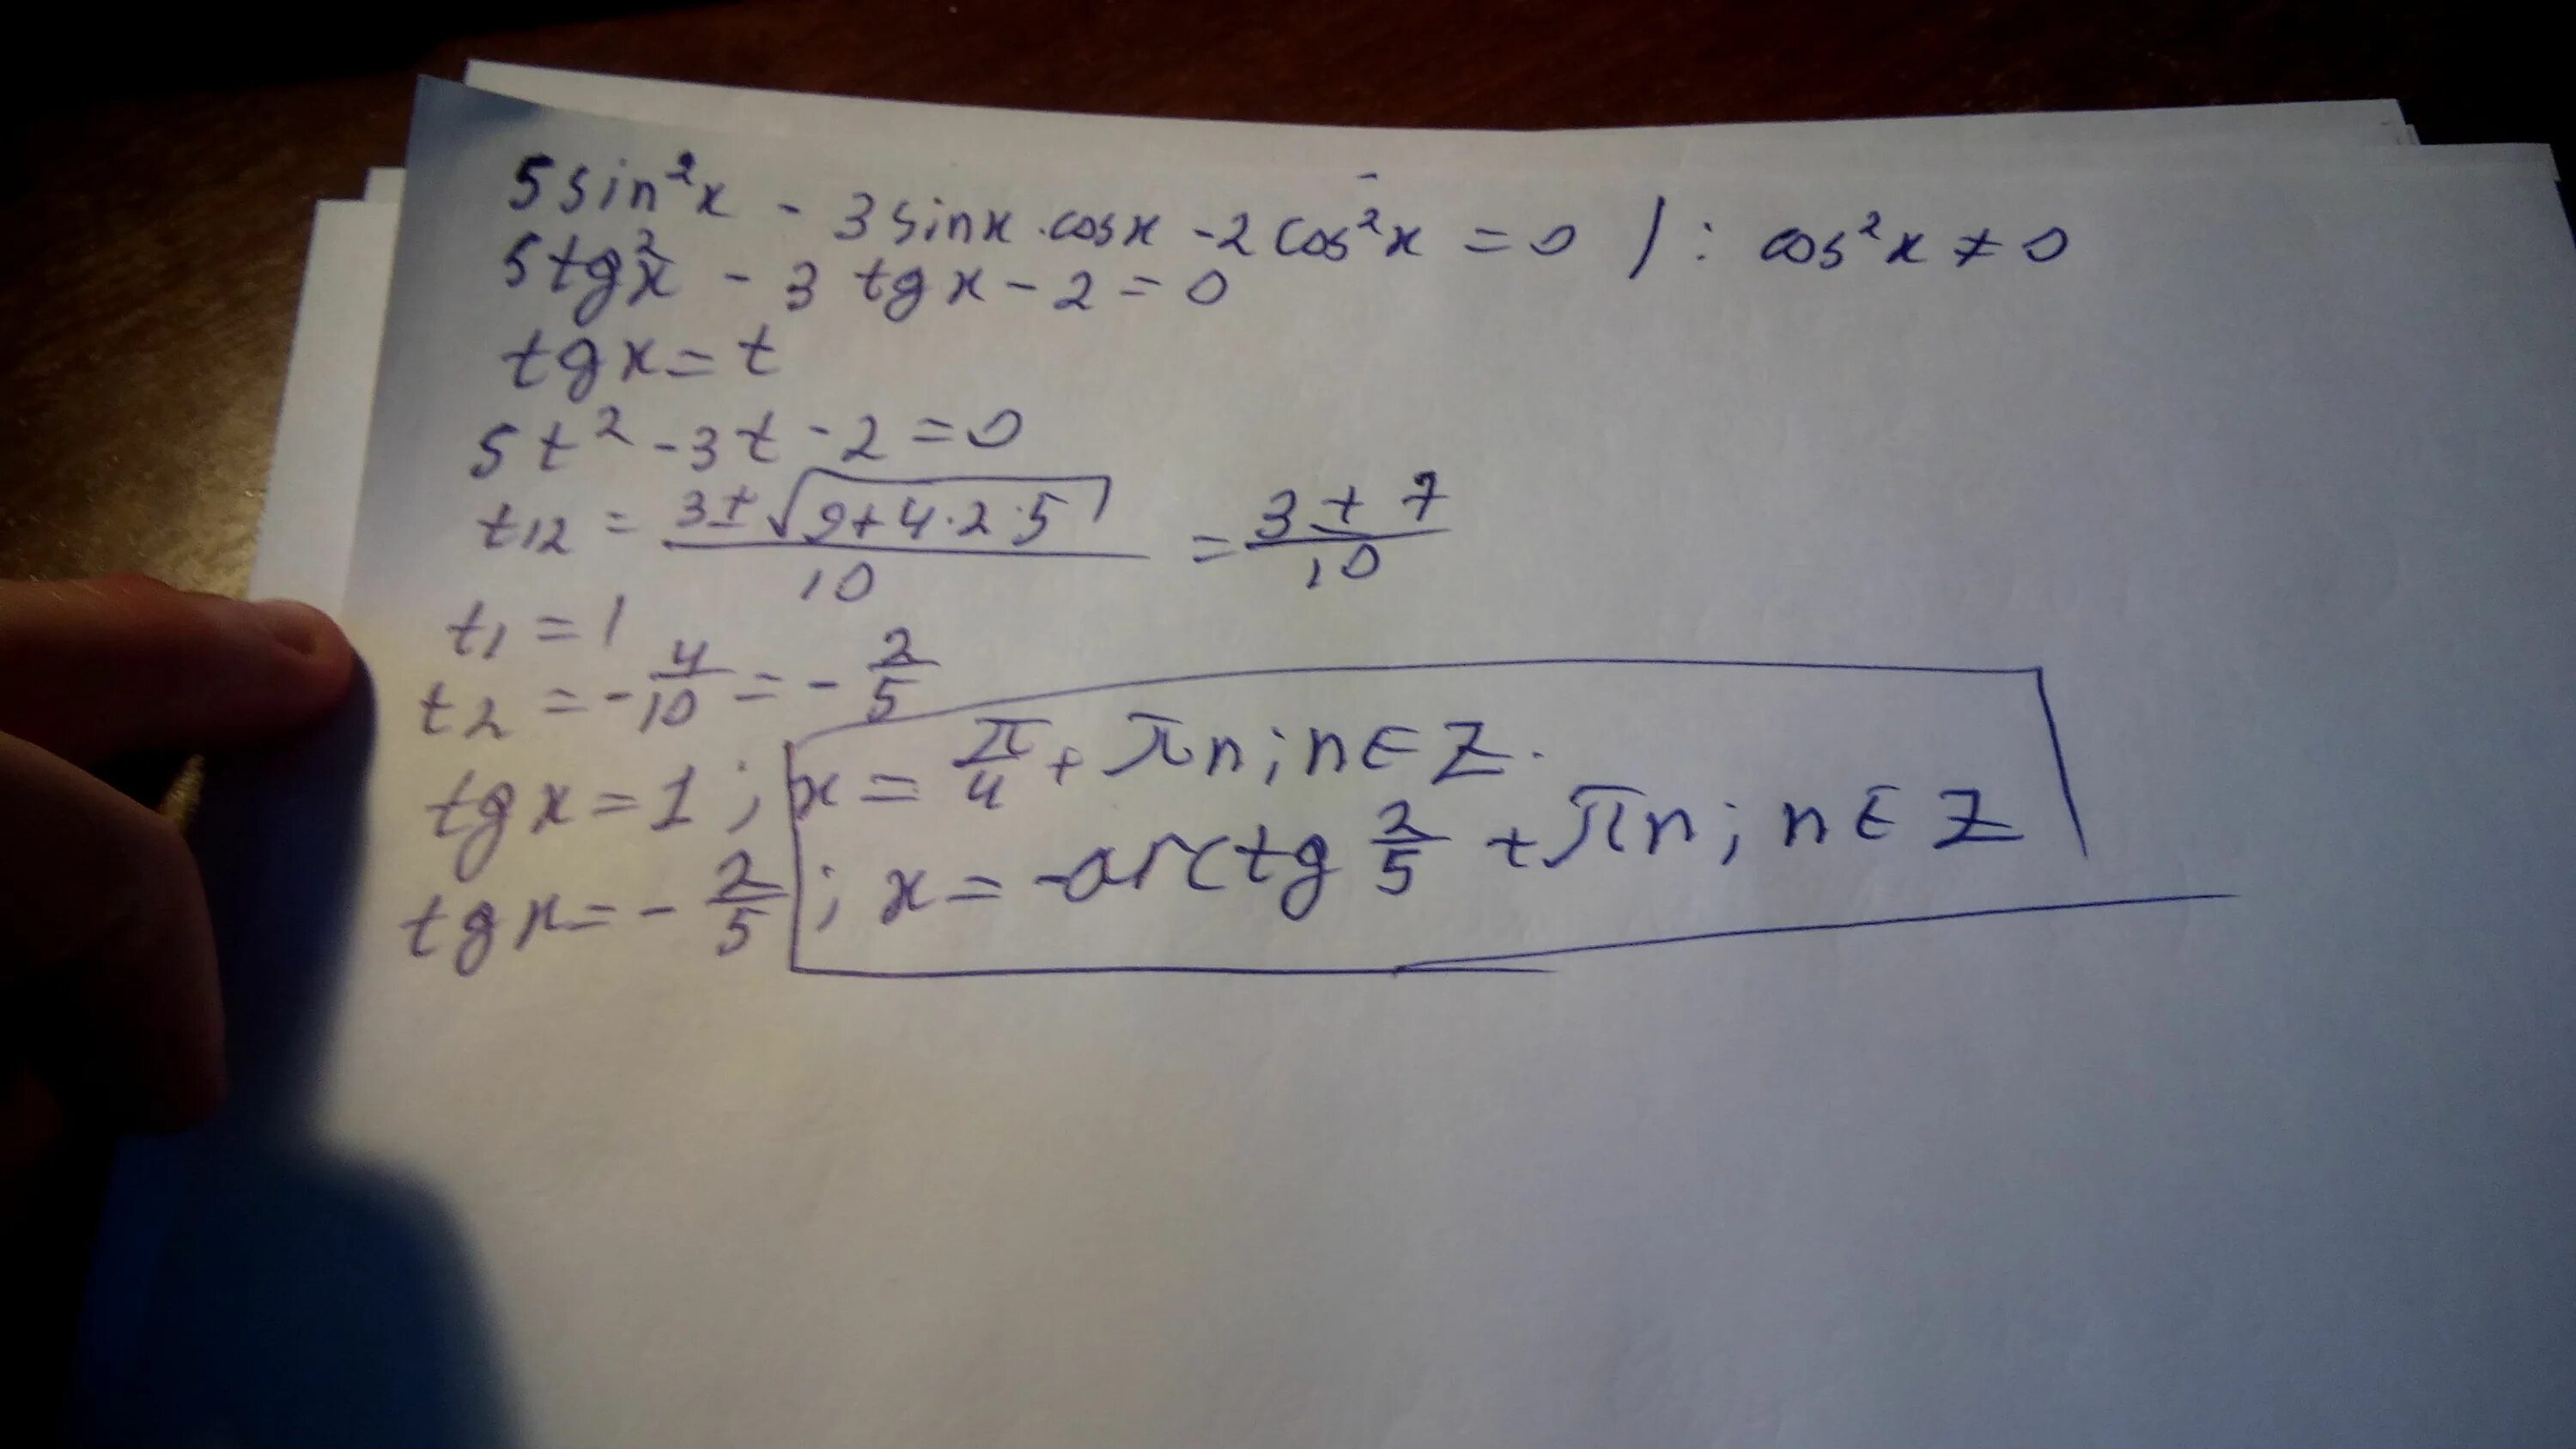 5sin²x - 3sinx·cosx - 2cos²x = 0 /: cos²x ≠ 0
5tg²x - 3 tgx - 2 = 0
tgx = t
5t² - 3t - 2 = 0
t12 = (3 ± √(9+4·2·5))/10 = (3 ± 7)/10
t1 = 1
t2 = -4/10 = -2/5
tgx = 1 ; x = π/4 + πn; n ∈ Z.
tgx = -2/5 ; x = -arctg 2/5 + πn; n ∈ Z